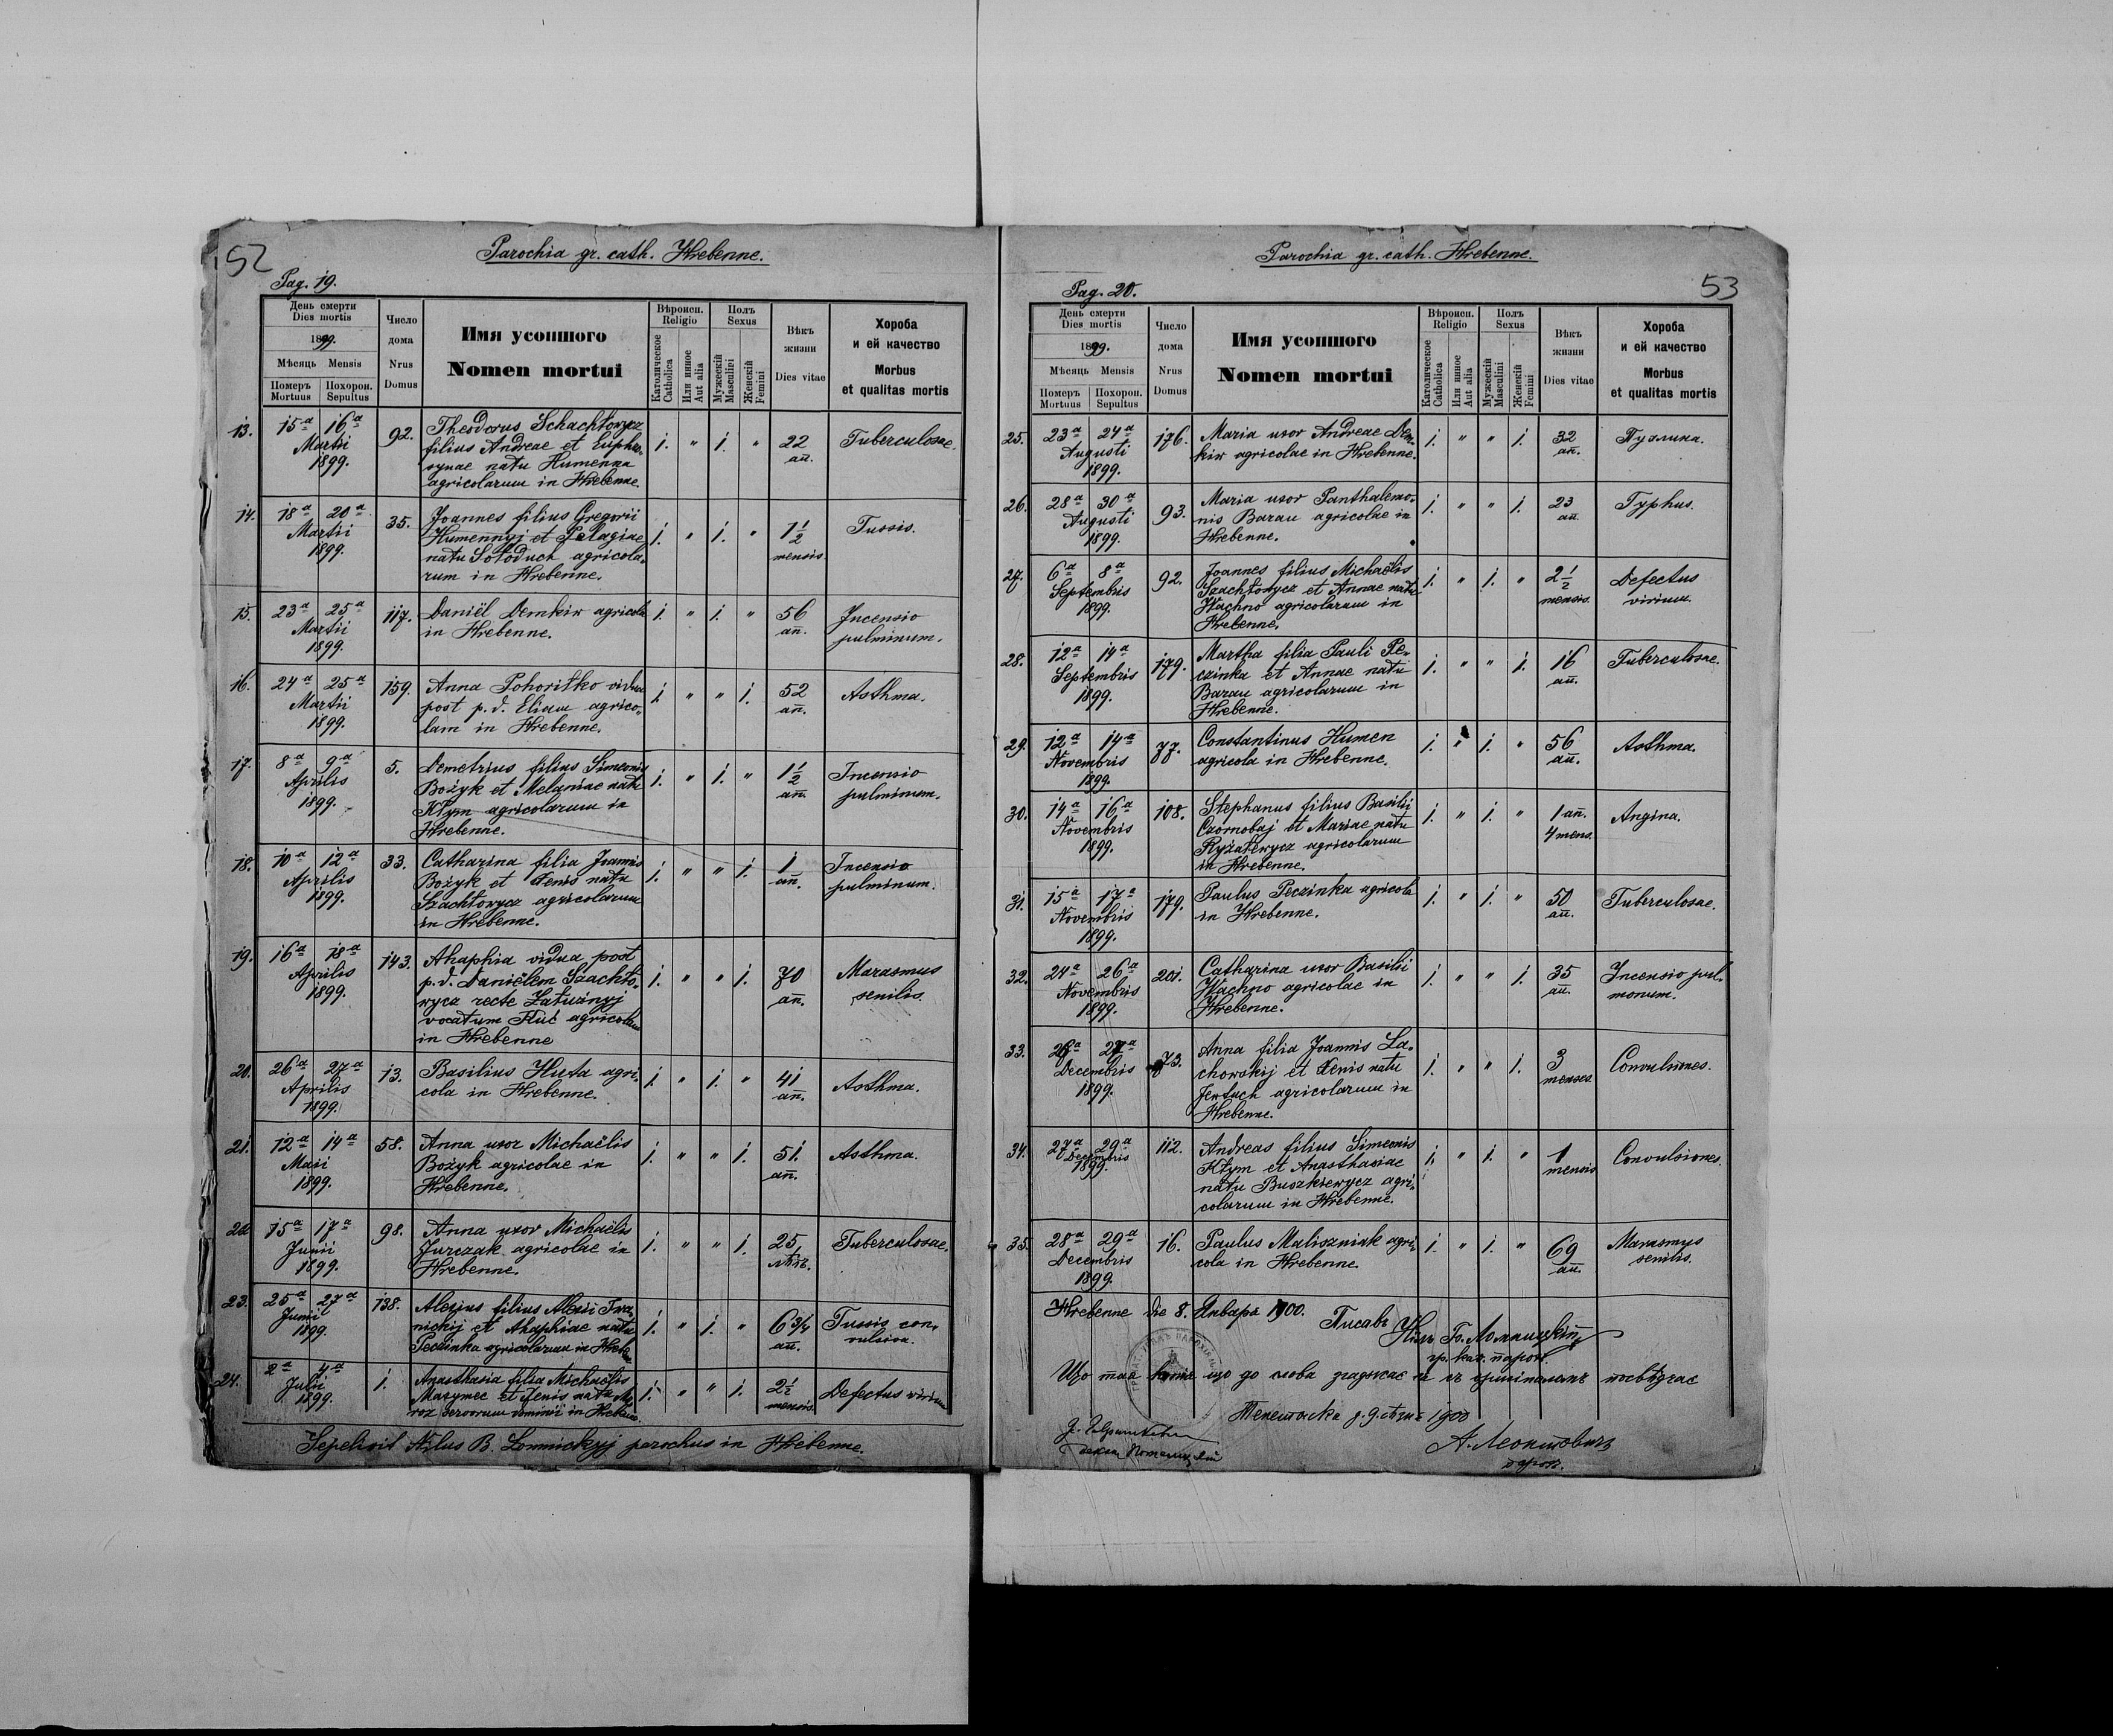 52
Parochia gr. cath. Hrebenne.
Pag. 19.
День смерти
Dies mortis
1899.
Мѣсяць Mensis
Померъ Mortuus
Похорон. Sepultus
Число дома
Nrus Domus
Имя усопшого
Nomen mortui
Вѣроисп.
Religio
Католическое
Catholica
Или инное
Aut alia
Полъ
Sexus
Мужескій
Masculini
Женскій
Femini
Вѣкъ жизни
Dies vitae
Хороба
и ей качество
Morbus
et qualitas mortis
13. 15ª 16ª 92. Theodorus Schachtowycz 1. " 1. " 22 Tuberculosae.
Martii filius Andreae et Euphro- an.
1899. synae natu Humenna
agricolarum in Hrebenne.
14. 18ª 20ª 35. Joannes filius Gregorii 1. " 1. " 1½ Tussis.
Martii Humennyj et Pelagiae mensis.
1899. natu Sołoduch agricola-
rum in Hrebenne.
15. 23ª 25ª 117. Daniël Demkiw agricola 1. " 1. " 56 Incensio
Martii in Hrebenne. an. pulminum.
1899.
16. 24ª 25ª 159. Anna Pohoritko vidua 1. " " 1. 52 Asthma.
Martii post p. d. Eliam agrico- an.
1899. lam in Hrebenne.
17. 8ª 9ª 5. Demetrius filius Simeonis 1. " 1. " 1½ Incensio
Aprilis Bożyk et Melaniae natu an. pulminum.
1899. Kłym agricolarum in
Hrebenne.
18. 10ª 12ª 33. Catharina filia Joannis 1. " " 1. 1 Incensio
Aprilis Bożyk et Xenis natu an. pulminum.
1899. Szachtowycz agricolarum
in Hrebenne.
19. 16ª 18ª 143. Ahaphia vidua post 1. " " 1. 70 Marasmus
Aprilis p. d. Daniëlem Szachto- an. senilis.
1899. wycz recte Załużnyj
vocatum Kuć agricolam
in Hrebenne
20. 26ª 27ª 13. Basilius Huta agri- 1. " 1. " 41 Asthma.
Aprilis cola in Hrebenne. an.
1899.
21. 12ª 14ª 58. Anna uxor Michaëlis 1. " " 1. 51. Asthma.
Maii Bożyk agricolae in an.
1899. Hrebenne.
22. 15ª 17ª 98. Anna uxor Michaëlis 1. " " 1. 25 Tuberculosae.
Junii Jurczak agricolae in
1899. Hrebenne.
23. 25ª 27ª 138. Alexius filius Alexii Iwa- 1. " 1. " 6 3/4 Tussis con-
Junii nickij et Ahaphiae natu an. vulsiva.
1899. Peczinka agricolarum in Hreben
24. 2ª 4ª 1. Anasthasia filia Michaëlis 1. " " 1. 2½ Defectus virium
Julii Marymec et Xenis natu Mo- mensis.
1899. roz servorum dominii in Hrebenne.
Sepelivit Nilus B. Łomnickyj parochus in Hrebenne.
53
Parochia gr. cath. Hrebenne.
Pag. 20.
День смерти
Dies mortis
1899.
Мѣсяць Mensis
Померъ Mortuus
Похорон. Sepultus
Число дома
Nrus Domus
Имя усопшого
Nomen mortui
Вѣроисп.
Religio
Католическое
Catholica
Или инное
Aut alia
Полъ
Sexus
Мужескій
Masculini
Женскій
Femini
Вѣкъ жизни
Dies vitae
Хороба
и ей качество
Morbus
et qualitas mortis
25. 23ª 24ª 176. Maria uxor Andreae Dem- 1. " " 1. 32 Пухлина.
Augusti kiw agricolae in Hrebenne. an.
1899.
26. 28ª 30ª 93. Maria uxor Panthalemo- 1. " " 1. 23 Typhus.
Augusti nis Baran agricolae in an.
1899. Hrebenne.
27. 6ª 8ª 92. Joannes filius Michaëlis 1. " 1. " 2½ Defectus
Septembris Szachtowycz et Annae natu mensis. virium.
1899. Wachno agricolarum in
Hrebenne.
28. 12ª 14ª 179. Martha filia Pauli Pe- 1. " " 1. 16 Tuberculosae.
Septembris czinka et Annae natu an.
1899. Baran agricolarum in
Hrebenne.
29. 12ª 14ª 77. Constantinus Humen 1. " 1. " 56 Asthma.
Novembris agricola in Hrebenne. an.
1899.
30. 14ª 16ª 108. Stephanus filius Basilii 1. " 1. " 1 an. Angina.
Novembris Czornobaj et Mariae natu 4 mens.
1899. Ryżatewycz agricolarum
in Hrebenne.
31. 15ª 17ª 179. Paulus Peczinka agricola 1. " 1. " 50 Tuberculosae.
Novembris in Hrebenne. an.
1899.
32. 24ª 26ª 201. Catharina uxor Basilii 1. " " 1. 35 Incensio pul-
Novembris Wachno agricolae in an. monum.
1899. Hrebenne.
33. 26ª 27ª 73. Anna filia Joannis La- 1. " " 1. 3 Convulsiones.
Decembris chowskij et Xenis natu menses.
1899. Jewtuch agricolarum in
Hrebenne.
34. 27ª 29ª 112. Andreas filius Simeonis 1. " 1. " 1 Convulsiones.
Decembris Kłym et Anasthasiae mensis
1899. natu Buszkiewycz agri-
colarum in Hrebenne.
35. 28ª 29ª 16. Paulus Maliszniak agri- 1. " 1. " 69 Marasmus
Decembris cola in Hrebenne. an. senilis.
1899.
Hrebenne die 8. Января 1900. Писавъ
Нилъ Б. Ломницкій
гр. кат. парох.
Що тая копія що до слова згаджає ся съ оригіналомъ посвѣдчає
д. 9. 1900
А. Леонтовичъ